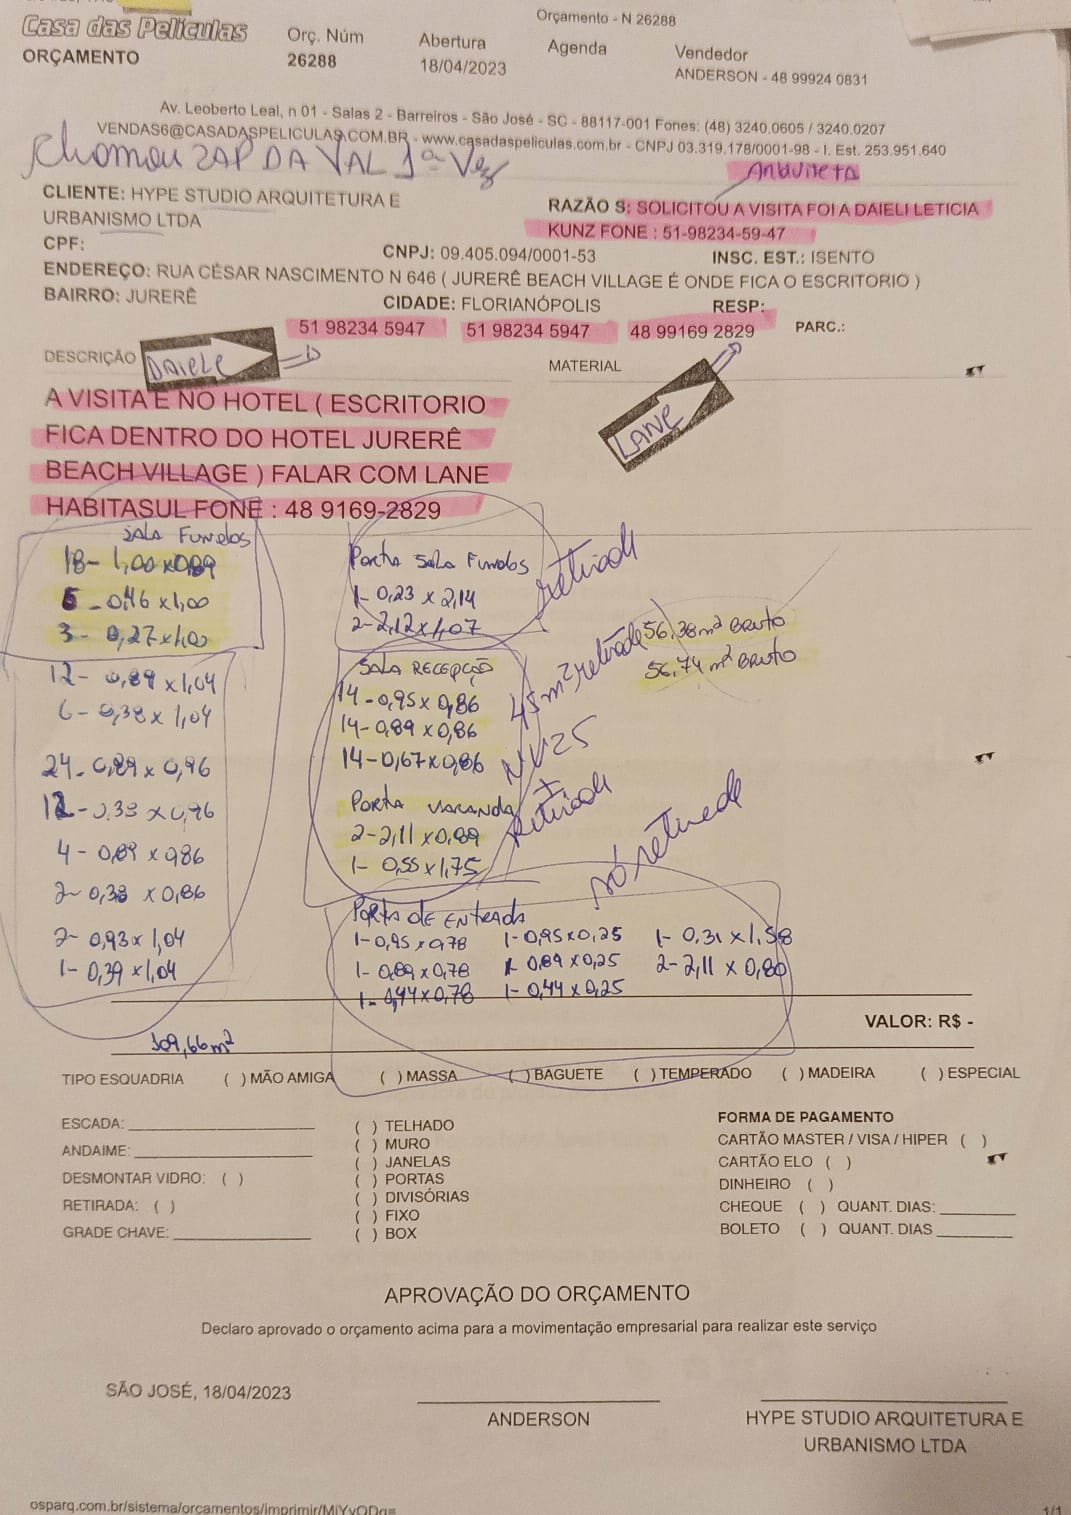 Orçamento - N 26288
Casa das Películas
ORÇAMENTO
Orç. Núm
26288
Abertura
18/04/2023
Agenda
Vendedor
ANDERSON - 48 99924 0831
Av. Leoberto Leal, n 01 - Salas 2 - Barreiros - São José - SC - 88117-001 Fones: (48) 3240.0605 / 3240.0207
VENDAS6@CASADASPELICULAS.COM.BR - www.casadaspeliculas.com.br - CNPJ 03.319.178/0001-98 - I. Est. 253.951.640
Chamou ZAP DA VAL 1ª Vez
Arquiteta
CLIENTE: HYPE STUDIO ARQUITETURA E
URBANISMO LTDA
RAZÃO S: SOLICITOU A VISITA FOI A DAIELI LETICIA
KUNZ FONE : 51-98234-59-47
CPF:
CNPJ: 09.405.094/0001-53
INSC. EST.: ISENTO
ENDEREÇO: RUA CÉSAR NASCIMENTO N 646 ( JURERÊ BEACH VILLAGE É ONDE FICA O ESCRITORIO )
BAIRRO: JURERÊ
CIDADE: FLORIANÓPOLIS
RESP:
51 98234 5947 51 98234 5947 48 99169 2829 PARC.:
DESCRIÇÃO
DAIELE
MATERIAL
LANE
A VISITA E NO HOTEL ( ESCRITORIO
FICA DENTRO DO HOTEL JURERÊ
BEACH VILLAGE ) FALAR COM LANE
HABITASUL FONE : 48 9169-2829
SALA FUNDOS
18- 1,00 x 0,89
6 - 0,46 x 1,00
3 - 0,27 x 1,00
12- 0,89 x 1,04
6- 0,38 x 1,04
24- 0,89 x 0,96
12- 0,38 x 0,96
4- 0,89 x 0,86
2- 0,38 x 0,86
2- 0,93 x 1,04
1- 0,39 x 1,04
109,66m²
Porta SALA FUNDOS
1- 0,23 x 2,14
2- 2,12 x 1,07
retirada
SALA RECEPÇÃO
14- 0,95 x 0,86
14- 0,89 x 0,86
14- 0,67 x 0,86
45m² retirada
56,38m² BRUTO
56,74m² BRUTO
NV25
+
retirada
Porta VARANDA
2- 2,11 x 0,89
1- 0,55 x 1,75
só retirada
Porta de ENTRADA
1- 0,95 x 0,78 1- 0,95 x 0,25 1- 0,31 x 1,58
1- 0,89 x 0,78 1- 0,89 x 0,25 2- 2,11 x 0,80
1- 0,44 x 0,78 1- 0,44 x 0,25
VALOR: R$ -
TIPO ESQUADRIA ( ) MÃO AMIGA ( ) MASSA ( ) BAGUETE ( ) TEMPERADO ( ) MADEIRA ( ) ESPECIAL
ESCADA:
ANDAIME:
DESMONTAR VIDRO: ( )
RETIRADA: ( )
GRADE CHAVE:
( ) TELHADO
( ) MURO
( ) JANELAS
( ) PORTAS
( ) DIVISÓRIAS
( ) FIXO
( ) BOX
FORMA DE PAGAMENTO
CARTÃO MASTER / VISA / HIPER ( )
CARTÃO ELO ( )
DINHEIRO ( )
CHEQUE ( ) QUANT. DIAS:
BOLETO ( ) QUANT. DIAS
APROVAÇÃO DO ORÇAMENTO
Declaro aprovado o orçamento acima para a movimentação empresarial para realizar este serviço
SÃO JOSÉ, 18/04/2023
ANDERSON
HYPE STUDIO ARQUITETURA E
URBANISMO LTDA
osparq.com.br/sistema/orcamentos/imprimir/
1/1